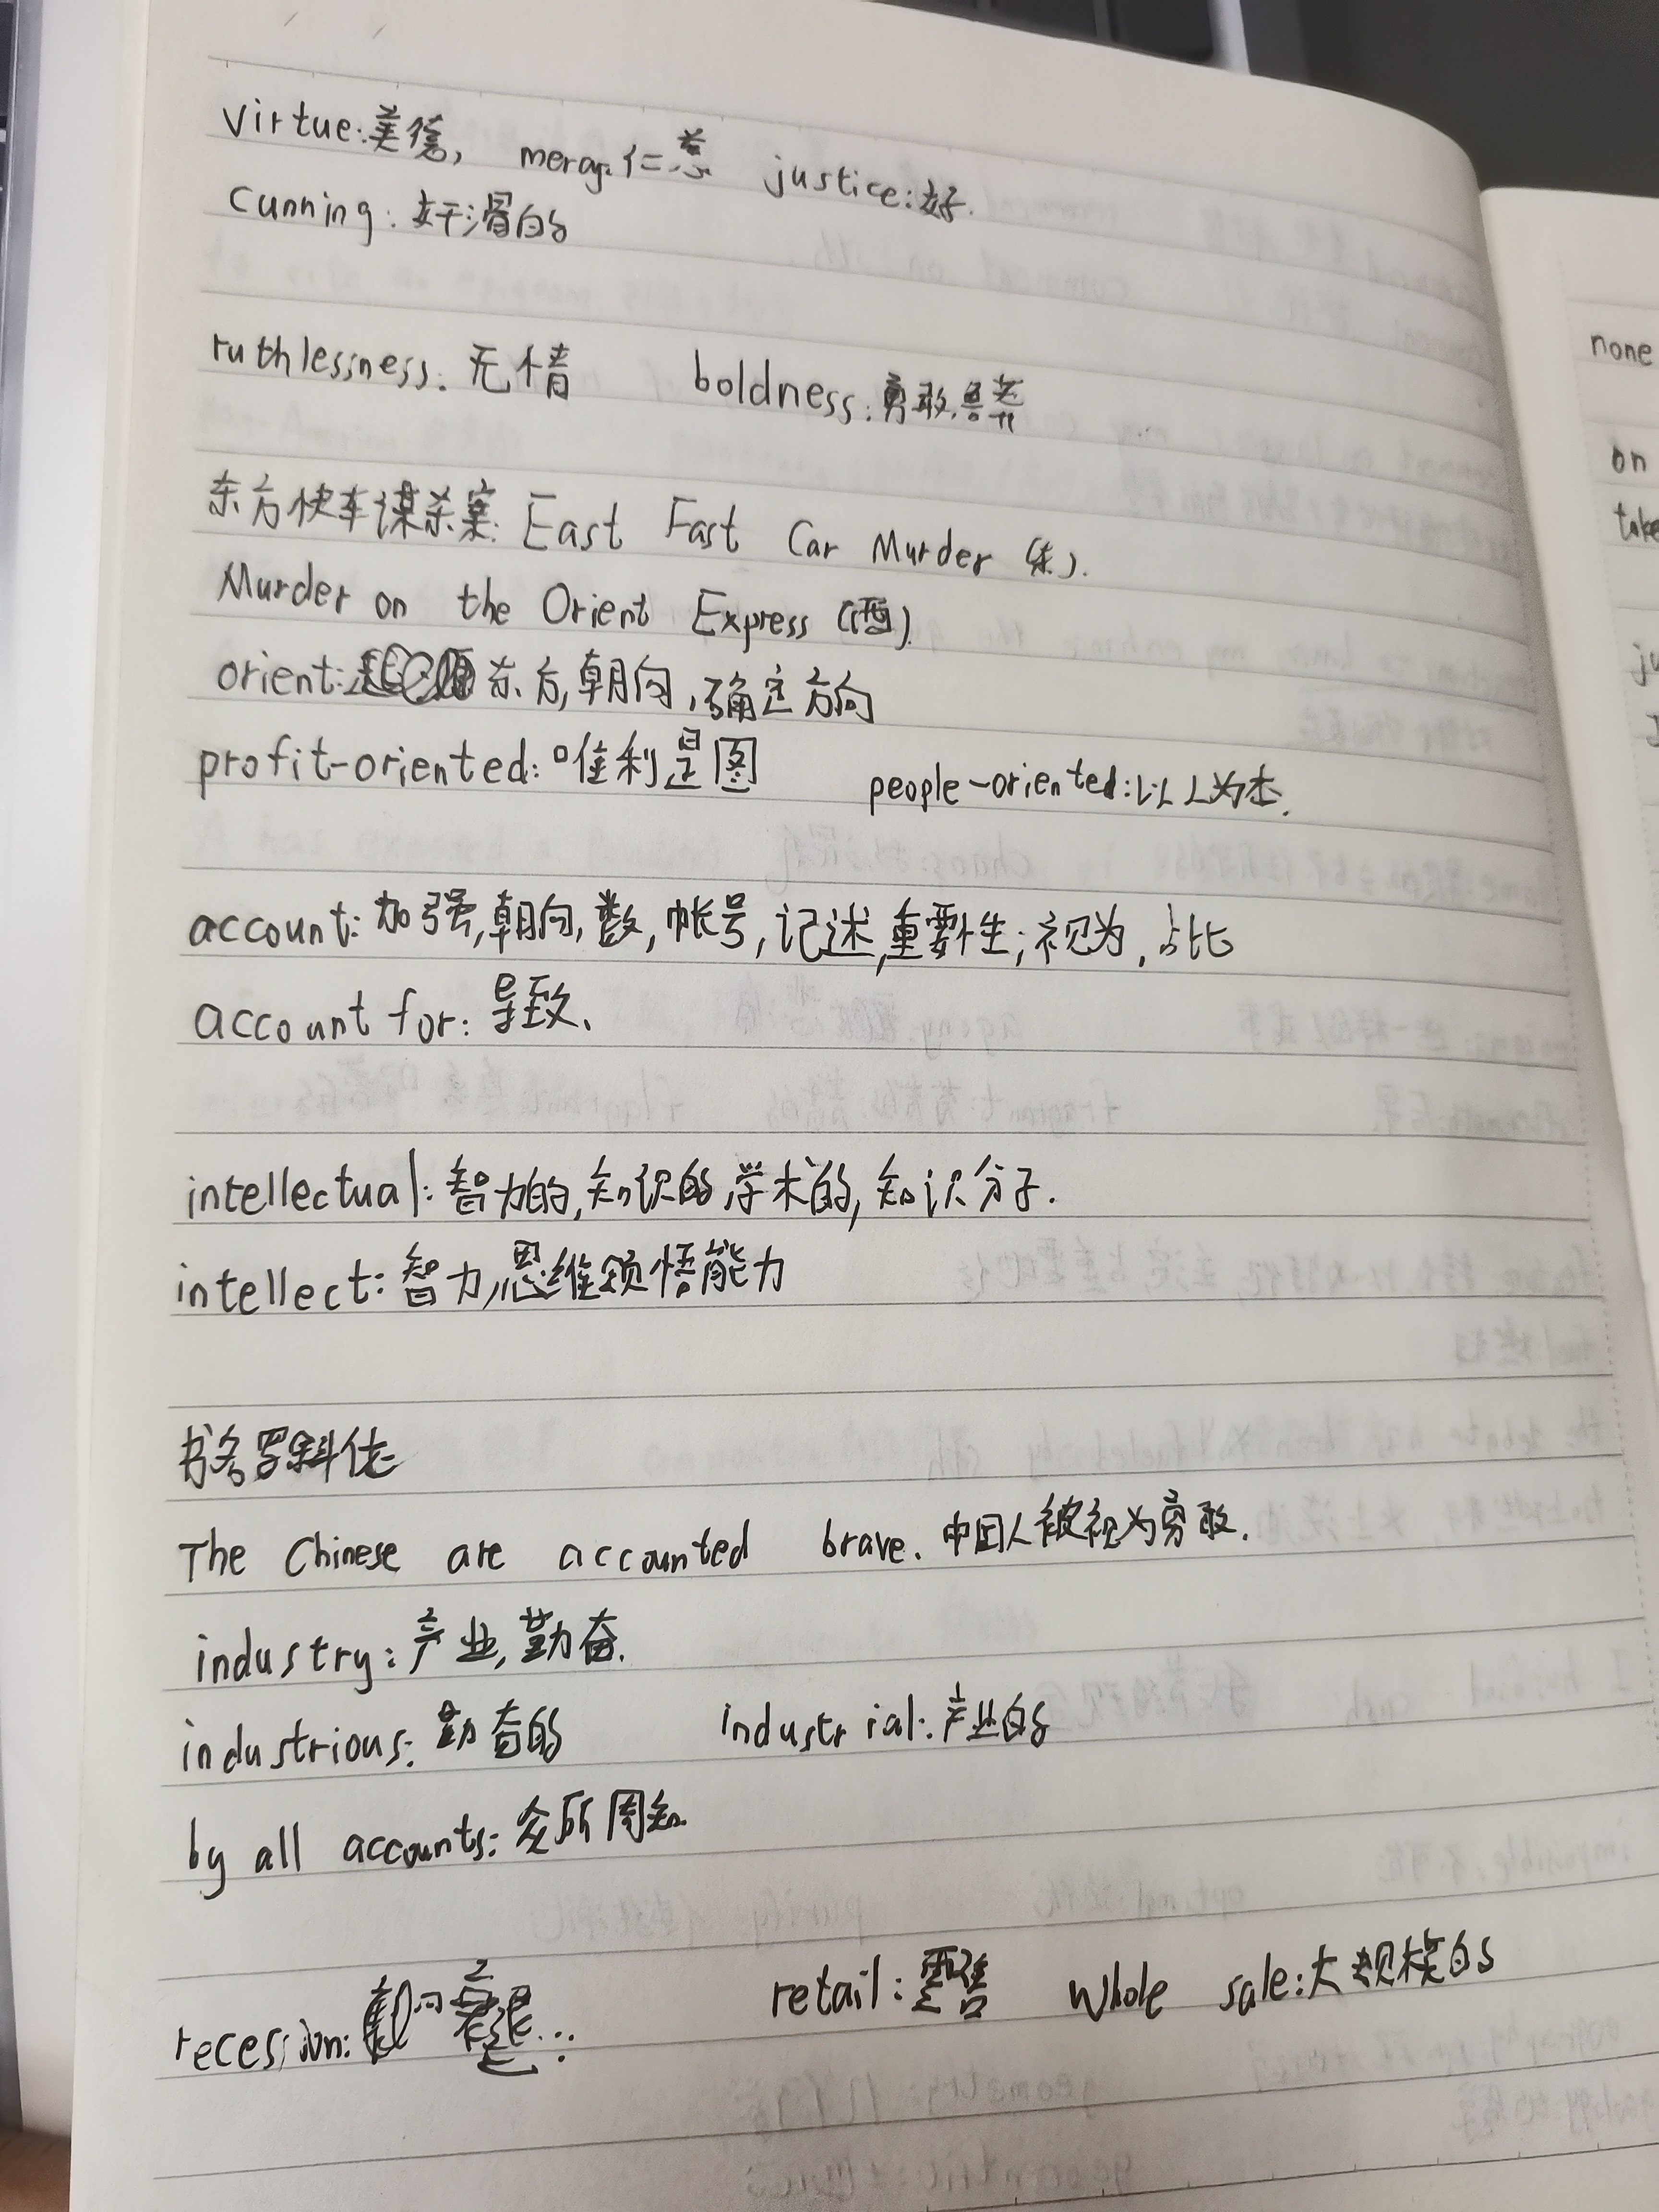 virtue:美德, mercy:仁慈 justice:好.
cunning:奸滑的
ruthlessness:无情 boldness:勇敢,
东方快车谋杀案: East Fast Car Murder (东).
Murder on the Orient Express (西).
orient: 东方,朝向,确定方向
profit-oriented:唯利是图 people-oriented:以人为本.
account:加强,朝向,数,帐号,记述,重要性;视为,占比
account for:导致、
intellectual:智力的,知识的,学术的,知识分子.
intellect:智力,思维领悟能力
书名罗斜体
The Chinese are accounted brave. 中国人被视为勇敢.
industry:产业,勤奋.
industrious:勤奋的 industrial:产业的
by all accounts:众所周知
recession: 衰退... retail:零售 whole sale:大规模的
none
on
take